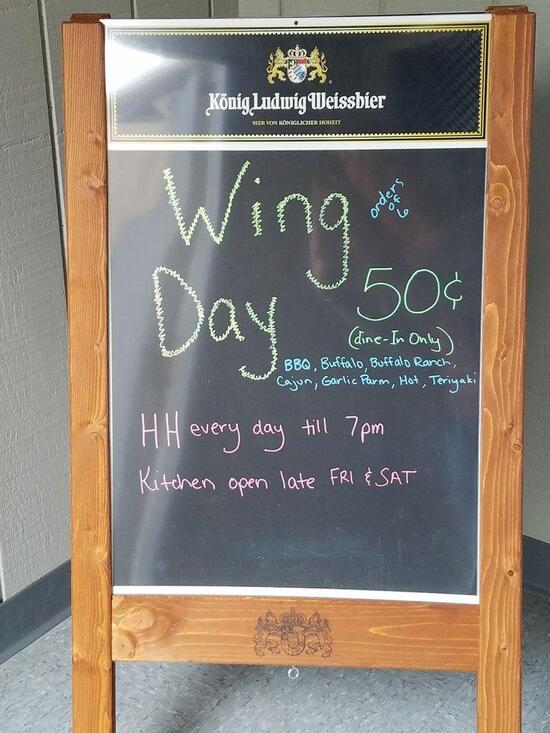 König Ludwig Weissbier
BIER VON KÖNIGLICHER HOHEIT
Wing
orders
of 6
Day
50¢
(dine-In Only)
BBQ, Buffalo, Buffalo Ranch,
Cajun, Garlic Parm, Hot, Teriyaki
HH every day till 7pm
Kitchen open late FRI & SAT